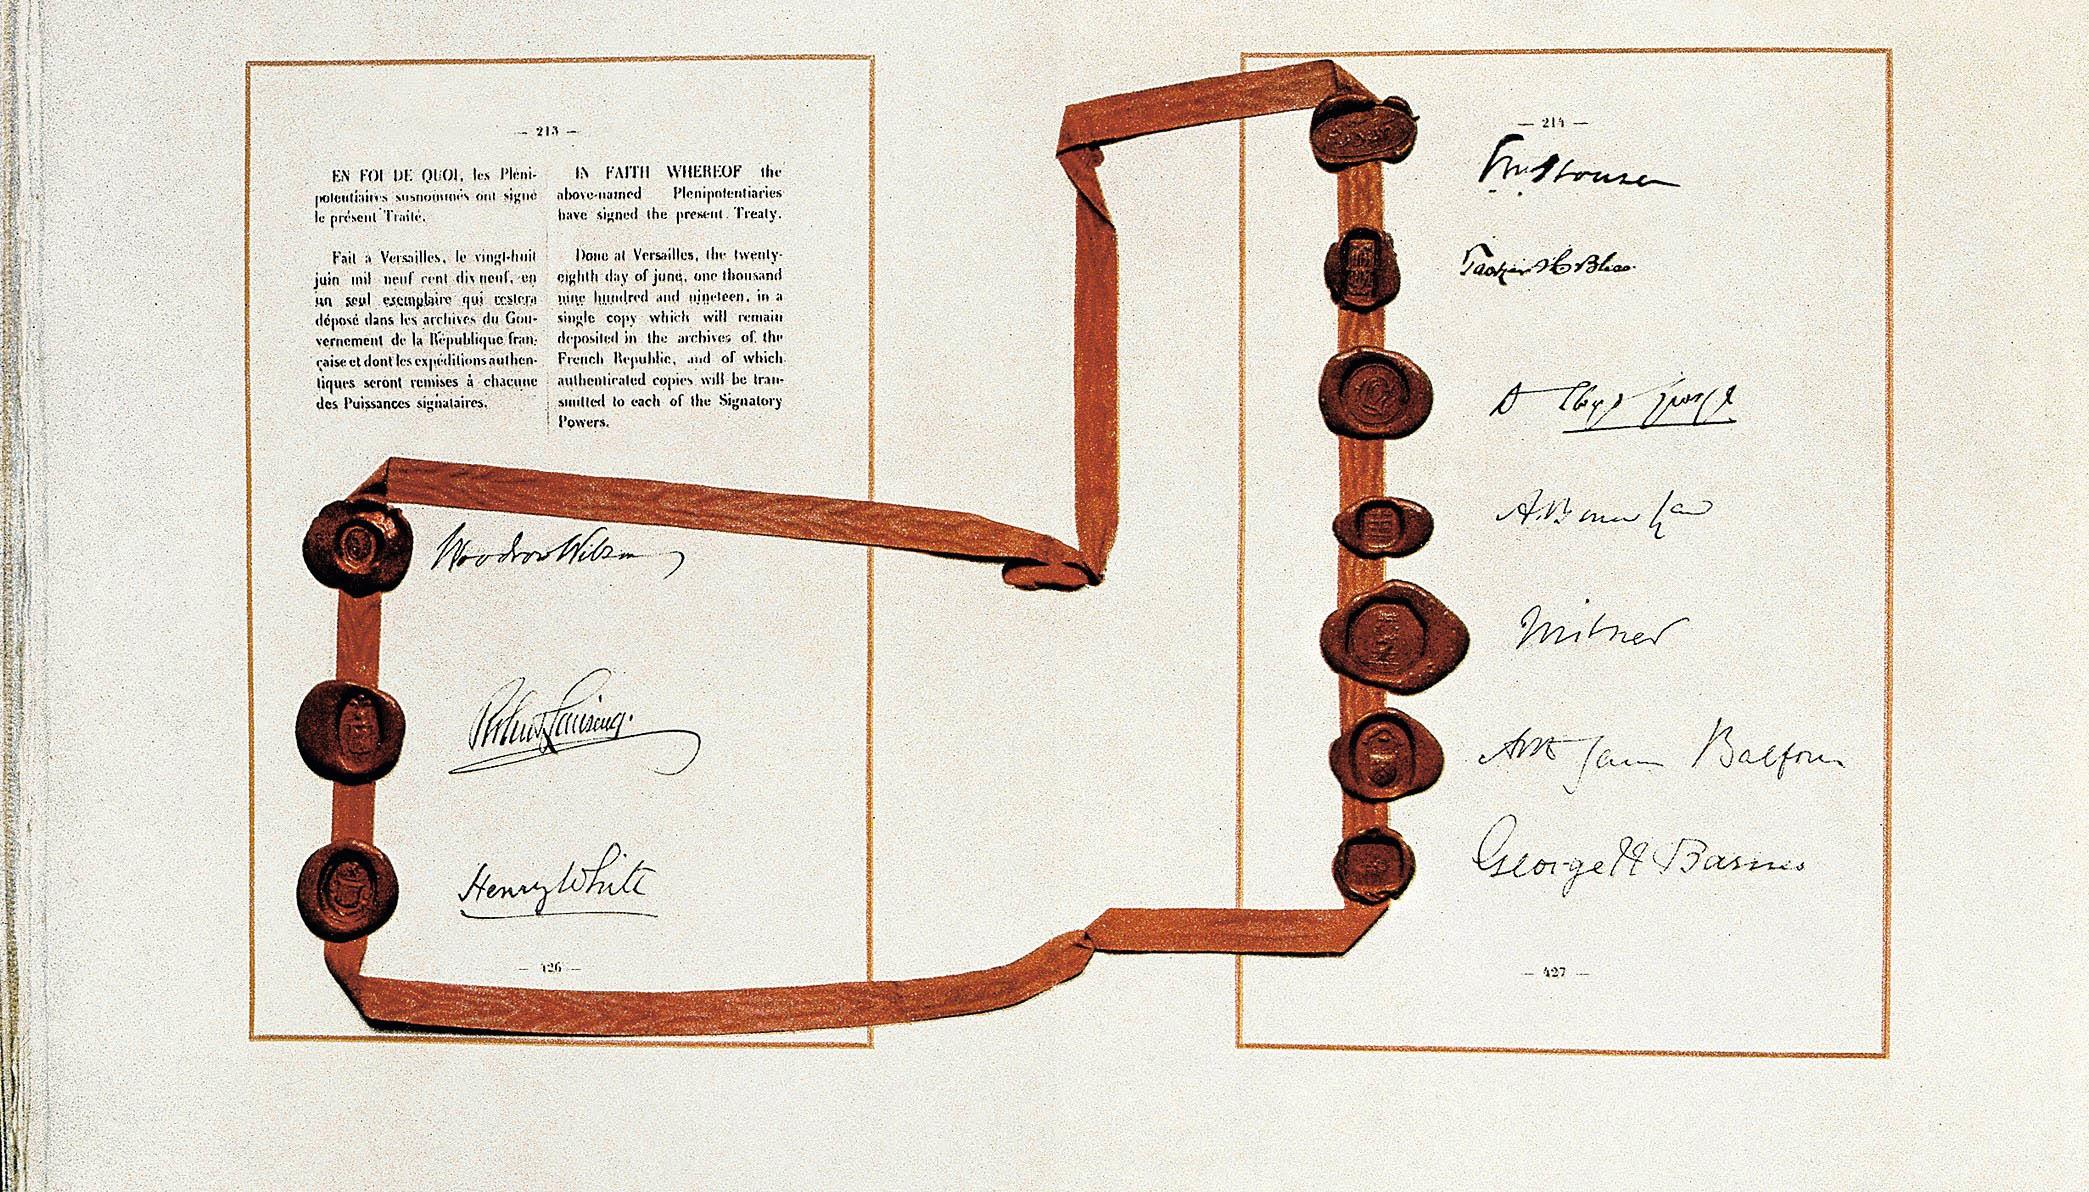 — 213 —
EN FOI DE QUOI, les Pléni-
potentiaires susnommés ont signé
le présent Traité.
Fait à Versailles, le vingt-huit
juin mil neuf cent dix neuf, en
un seul exemplaire qui restera
déposé dans les archives du Gou-
vernement de la République fran-
çaise et dont les expéditions authen-
tiques seront remises à chacune
des Puissances signataires.
IN FAITH WHEREOF the
above-named Plenipotentiaries
have signed the present Treaty.
Done at Versailles, the twenty-
eighth day of june, one thousand
nine hundred and nineteen, in a
single copy which will remain
deposited in the archives of the
French Republic, and of which
authenticated copies will be tran-
smitted to each of the Signatory
Powers.
Woodrow Wilson
Robert Lansing.
Henry White
— 426 —
— 214 —
House
Tasker H Bliss.
D Lloyd George
A. Bonar Law
Milner
James Balfour
George N Barnes
— 427 —